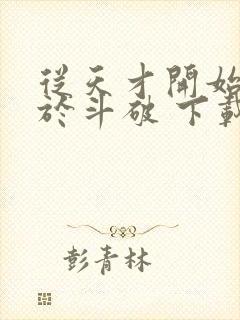 從天才開始
於斗破 下載
彭青林